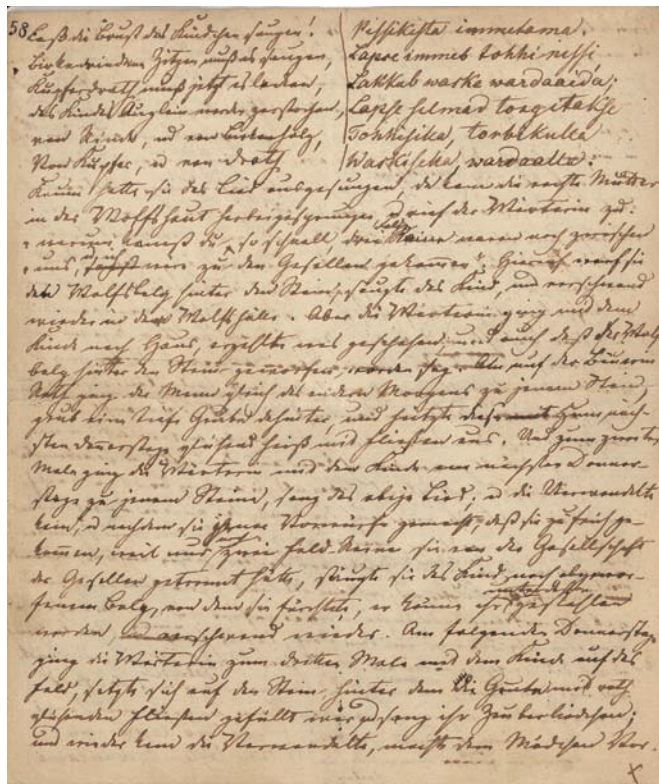 58 Laß die Brust das Kindchen saugen!
Birkenrindene Zitzen muß es saugen,
Kupferdrath muß jetzt es lecken,
des Kindes Auglein werden zerstochen,
von Rinde, und von Birkenholz,
Von Kupfer, u von Drath.
Pissikesta immetama.
Lapse immeb tohhi nissi,
Lakkub waske wardaaida;
Lapse silmad torgitakse
Tohhisilla, torbikulla
Waskisella, wardaalla.
Kaum hatte sie das Lied ausgesungen, da kam die rechte Mutter
in der Wolfshaut herbeigesprungen, u rief der Wärterin zu:
warum kamst du so schnell, drei Feld Raine waren noch zwischen
uns, u ich wäre zu den Gesellen gekommen". Hierauf warf sie
den Wolfsbelg hinter den Stein, säugte das Kind, und verschwand
wieder in der Wolfshülle. Aber die Wärterin ging mit dem
Kinde nach Haus, erzählte was geschehen und auch daß der Wolfs
belg hinter den Stein geworfen worden auf der Bäuerin
Rath ging der Mann gleich des andern Morgens zu jenem Stein,
grub eine tiefe Grube dahinter, und setzte zum näch-
sten Donnerstage glühend heiß mit Fliesen aus. Und zum zweiten
Male ging die Wärterin mit dem Kinde am nächsten Donner-
stage zu jenem Steine, sang das obige Lied, u die Verwandelte
kam, u nachdem sie jener Vorwürfe gemacht, daß sie zu früh ge-
kommen, weil nur noch zwei Feld-Raine sie von der Gesellschaft
der Gesellen getrennt hätte, säugte sie das Kind nach abgewor-
fenem Belg, von dem sie fürchtete, er könne ihr gestohlen
werden und verschwand wieder. Am folgenden Donnerstage
ging die Wärterin zum dritten Male mit dem Kinde auf das
Feld, setzte sich auf den Stein, hinter dem die Grube mit roth
glühenden Fliesen gefüllt war, u sang ihr Zauberliedchen;
und wieder kam die Verwandelte, machte dem Mädchen Vor-